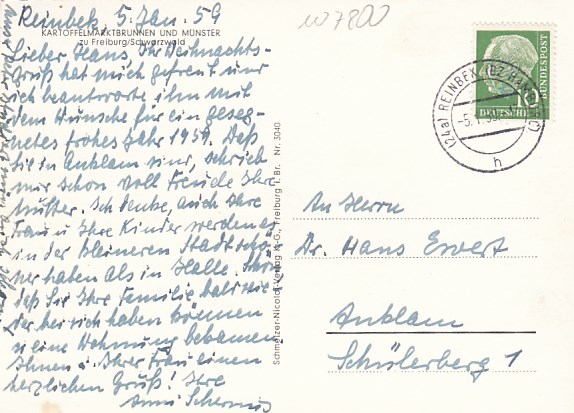 Reinbek, 5. Jan. 59
KARTOFFELMARKTBRUNNEN UND MÜNSTER
zu Freiburg/Schwarzwald
Lieber Hans, Ihr Weihnachts-
gruß hat mich gefreut und
ich beantworte ihn mit
dem Wunsche für ein geseg-
netes frohes Jahr 1959. Daß
Sie in Anklam sind, schrieb
mir schon voll Freude Ihre
Mutter. Ich denke, auch Ihre
Frau u Ihre Kinder werden es
in der kleineren Stadt schö-
ner haben als in Halle.
daß Sie Ihre Familie bald wie-
der bei sich haben können
u eine Wohnung bekamen
Ihnen u. Ihrer Frau einen
herzlichen Gruß! Ihre
Anni Schernus
Schmelzer-Nicolai-Verlag K.-G., Freiburg i. Br. Nr. 3040
w7800
DEUTSCHE BUNDESPOST
10
(24a) REINBEK (BZ HAMBURG)
-5.1.59
h
An Herrn
Dr. Hans Ewert
Anklam
Schülerberg 1